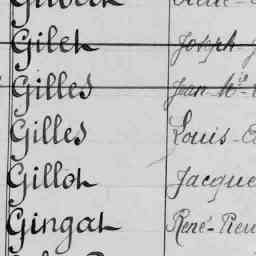 Gilet Joseph
Gilles Jean
Gilles Louis
Gillot Jacque
Gingat René-Pier